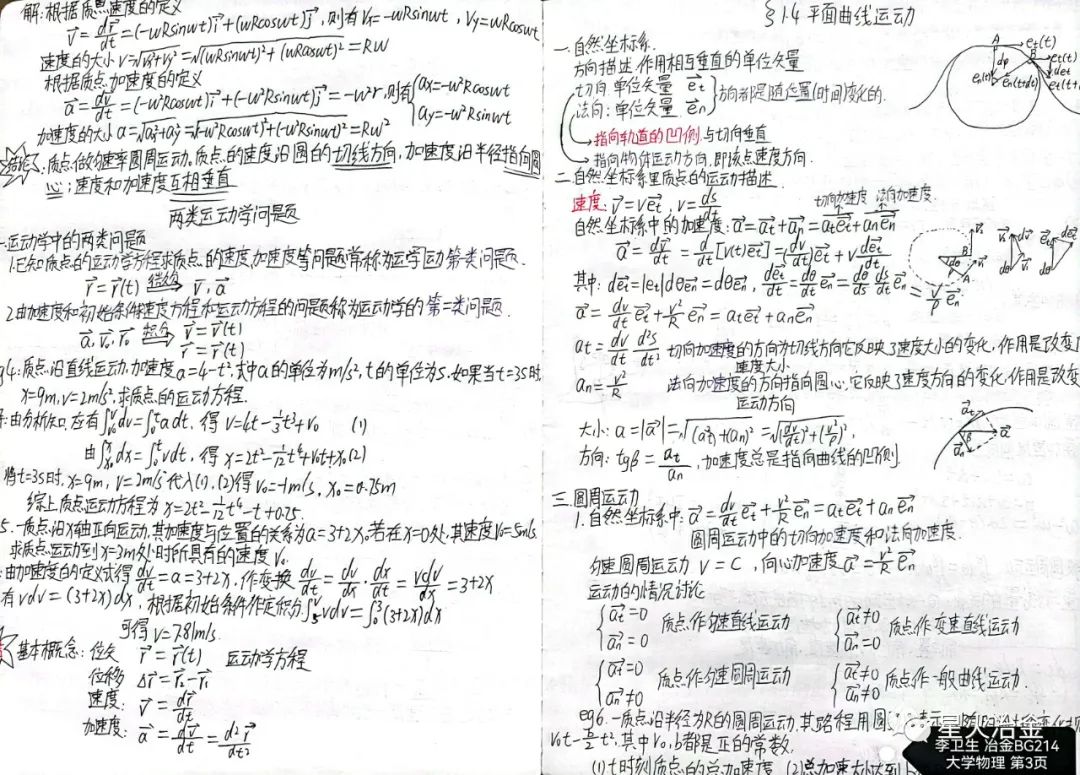 解:根据质点速度的定义
v⃗ = dr⃗/dt = (-wRsinwt)i⃗ + (wRcoswt)j⃗, 则有 Vx = -wRsinwt, Vy = wRcoswt
速度的大小 V = √(Vx²+Vy²) = √((wRsinwt)²+(wRcoswt)²) = RW
根据质点加速度的定义
a⃗ = dv⃗/dt = (-w²Rcoswt)i⃗ + (-w²Rsinwt)j⃗ = -w²r, 则有 { ax = -w²Rcoswt
ay = -w²Rsinwt
加速度的大小 a = √(ax²+ay²) = √((-w²Rcoswt)²+(-w²Rsinwt)²) = RW²
结论: 质点做匀速率圆周运动,质点的速度沿圆的切线方向,加速度沿半径指向圆
心;速度和加速度互相垂直
两类运动学问题
一.运动学中的两类问题
1.已知质点的运动学方程求质点的速度,加速度等问题常称为运学动第一类问题.
r⃗ = r⃗(t) ⟹ v⃗, a⃗
2.由加速度和初始条件速度方程和运动方程的问题称为运动学的第二类问题.
a⃗, v⃗₀, r⃗₀ ⟹ v⃗ = v⃗(t)
r⃗ = r⃗(t)
eg4:质点沿直线运动,加速度 a = 4-t²,式中a的单位为m/s²,t的单位为s,如果当t=3s时,
x=9m, v=2m/s,求质点的运动方程.
解:由分析知,应有 ∫dv = ∫a dt, 得 V = 4t - 1/3 t³ + V₀ (1)
由 ∫dx = ∫v dt, 得 x = 2t² - 1/12 t⁴ + V₀t + x₀ (2)
将t=3s时, x=9m, v=2m/s代入(1),(2)得 V₀=-1m/s, x₀=0.75m
综上质点运动方程为 x = 2t² - 1/12 t⁴ - t + 0.75.
5.一质点沿x轴正向运动,其加速度与位置的关系为a=3+2x,若在x=0处,其速度V₀=5m/s.
求质点运动到x=3m处时所具有的速度V.
由加速度的定义式得 dv/dt = a = 3+2x, 作变换 dv/dt = dv/dx · dx/dt = vdv/dx = 3+2x
有 vdv = (3+2x)dx, 根据初始条件作定积分 ∫₅ᵛ vdv = ∫₀³ (3+2x)dx
可得 v = 7.81m/s.
基本概念: 位矢 r⃗ = r⃗(t) 运动学方程
位移 Δr⃗ = r⃗₂ - r⃗₁
速度: v⃗ = dr⃗/dt
加速度: a⃗ = dv⃗/dt = d²r⃗/dt²
§1.4 平面曲线运动
一.自然坐标系.
方向描述,作用相互垂直的单位矢量
切向:单位矢量 e⃗t
法向:单位矢量 e⃗n } 方向都是随位置(时间)变化的.
指向轨道的凹侧,与切向垂直
指向物体运动方向,即该点速度方向.
二.自然坐标系里质点的运动描述.
速度: v⃗ = ve⃗t, v = ds/dt
切向加速度 法向加速度
自然坐标系中的加速度: a⃗ = a⃗t + a⃗n = at e⃗t + an e⃗n
a⃗ = dv⃗/dt = d/dt[v(t)e⃗t] = (dv/dt)e⃗t + v de⃗t/dt
其中: de⃗t = |et|dθe⃗n = dθe⃗n, de⃗t/dt = dθ/dt e⃗n = dθ/ds ds/dt e⃗n = v/ρ e⃗n
a⃗ = dv/dt e⃗t + v²/R e⃗n = at e⃗t + an e⃗n
at = dv/dt d²s/dt² 切向加速度的方向为切线方向它反映了速度大小的变化,作用是改变
速度大小
an = v²/R 法向加速度的方向指向圆心,它反映了速度方向的变化,作用是改变
运动方向
大小: a = |a⃗| = √((at)²+(an)²) = √((dv/dt)²+(v²/ρ)²),
方向: tgβ = at/an, 加速度总是指向曲线的凹侧.
三.圆周运动
1.自然坐标系中: a⃗ = dv/dt e⃗t + v²/R e⃗n = at e⃗t + an e⃗n
圆周运动中的切向加速度和法向加速度.
匀速圆周运动 V = C, 向心加速度 a⃗ = v²/R e⃗n
运动的情况讨论
{ a⃗t = 0 a⃗n = 0 质点作匀速直线运动 { a⃗t ≠ 0 a⃗n = 0 质点作变速直线运动
{ a⃗t = 0 a⃗n ≠ 0 质点作匀速圆周运动 { a⃗t ≠ 0 a⃗n ≠ 0 质点作一般曲线运动.
eg6.一质点沿半径为R的圆周运动,其路程用圆
V₀t - b/2 t²,其中V₀,b都是正的常数.
(1) t时刻质点的总加速度 (2)总加速大小达到b
星火冶金
李卫生 冶金BG214
大学物理 第3页